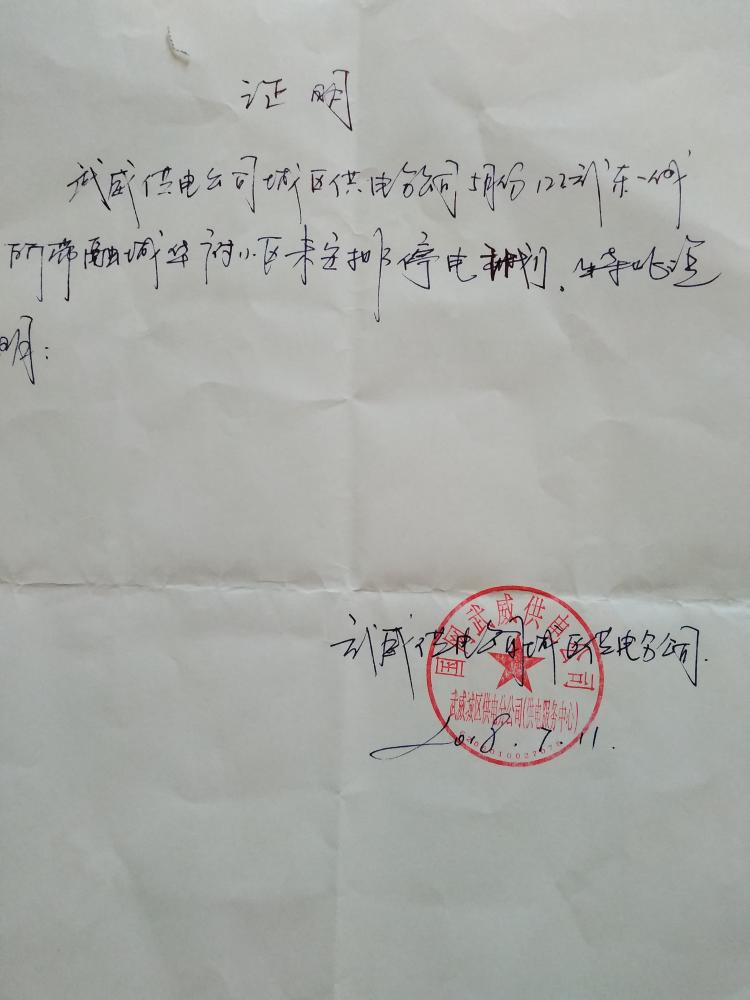 证明
武威供电公司城区供电分公司5月份122武东一线
所带融城华府小区未安排停电计划，特此证
明：
国网武威供电公司
武威供电公司城区供电分公司.
武威城区供电分公司(供电服务中心)
2018.7.11.